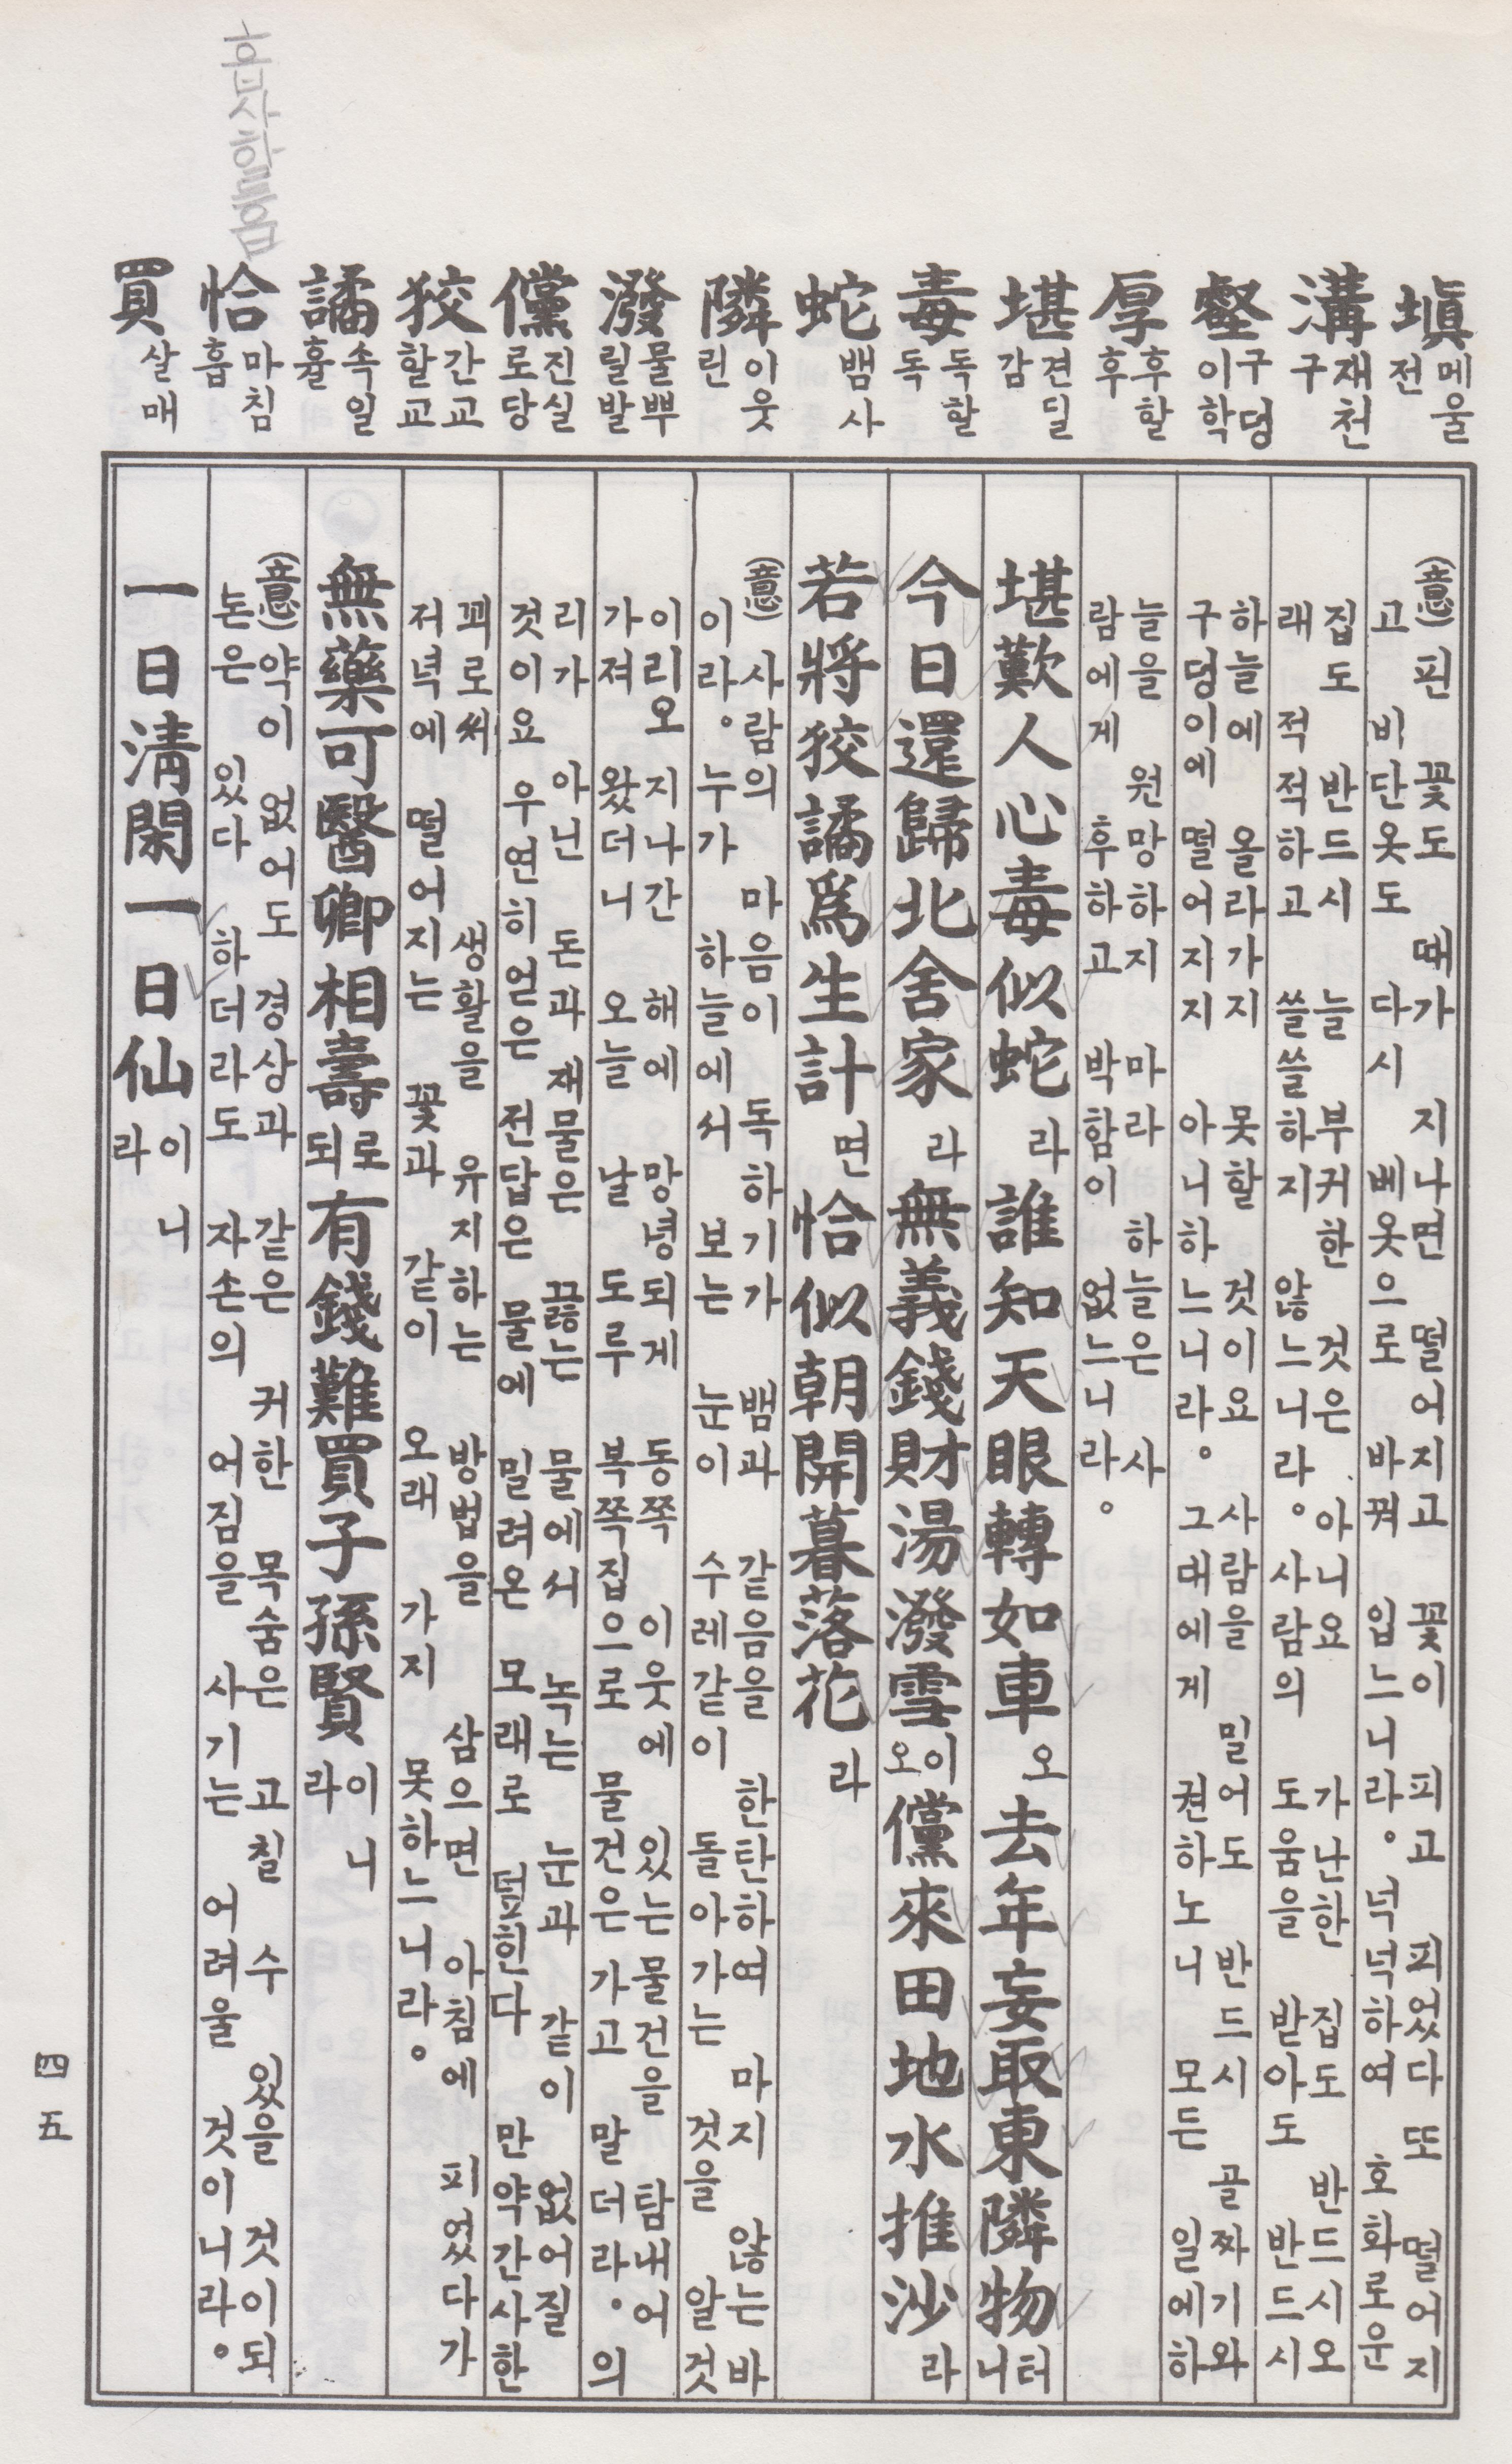 塡 메울 전
溝 개천 구
壑 구덩이 학
厚 후할 후
堪 견딜 감
毒 독할 독
蛇 뱀 사
隣 이웃 린
潑 물뿌릴 발
儻 진실로 당
狡 간교할 교
譎 속일 휼
恰 마침 흡
買 살 매
(意) 핀 꽃도 때가 지나면 떨어지고 꽃이 피고 피었다 또 떨어지
고 비단옷도 다시 베옷으로 바꿔 입느니라。 넉넉하여 호화로운
집도 반드시 늘 부귀한 것은 아니요 가난한 집도 반드시 오
래 적적하고 쓸쓸하지 않느니라。 사람의 도움을 받아도 반드시
하늘에 올라가지 못할 것이요 사람을 밀어도 반드시 골짜기와
구덩이에 떨어지지 아니하느니라。 그대에게 권하노니 모든 일에 하
늘을 원망하지 마라 하늘은 사
람에게 후하고 박함이 없느니라。
堪歎人心毒似蛇라 誰知天眼轉如車오 去年妄取東隣物터니
今日還歸北舍家라 無義錢財湯潑雪이오 儻來田地水推沙라
若將狡譎爲生計면 恰似朝開暮落花라
(意) 사람의 마음이 독하기가 뱀과 같음을 한탄하여 마지 않는바
이라。 누가 하늘에서 보는 눈이 수레같이 돌아가는 것을 알것
이리오 지나간 해에 망녕되게 동쪽 이웃에 있는 물건을 탐내어
가져 왔더니 오늘 날 도루 북쪽 집으로 물건은 가고 말더라。 의
리가 아닌 돈과 재물은 끓는 물에서 녹는 눈과 같이 없어질
것이요 우연히 얻은 전답은 물에 밀려온 모래로 변한다 만약 간사한
꾀로써 생활을 유지하는 방법을 삼으면 아침에 피었다가
저녁에 떨어지는 꽃과 같이 오래 가지 못하느니라。
無藥可醫卿相壽로되 有錢難買子孫賢이니라
(意) 약이 없어도 경상과 같은 귀한 목숨은 고칠 수 있을 것이되
돈은 있다 하더라도 자손의 어짐을 사기는 어려울 것이니라。
一日淸閑一日仙이니라
四五